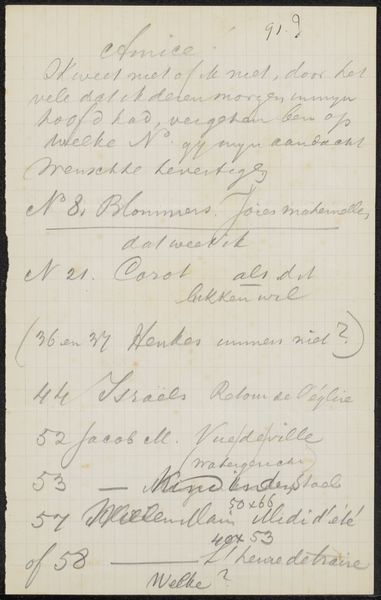 91.
Amice.
Ik weet niet of ik niet, door het
vele dat ik dezen morgen in mijn
hoofd had, vergeten ben op
welke No. gij mijn aandacht
wenschte bevestigen
No 8. Blommers. Joies maternelles
dat weet ik
N 21. Corot als dit
lukken wil
(36 en 37 Henkes immers niet?)
44 Israëls Retour de l'église
52 Jacob M. Vue de ville
53 —
50 x 66
57 Willem Maris Midi d'été
40 x 53
of 58 — L'heure de traire
Welke?